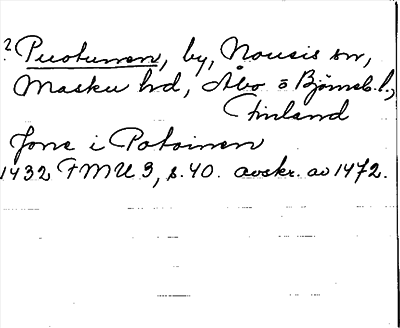 ? Puotunen, by, Nousis sn,
Masku hd, Åbo o Björneb. l.,
Finland
Jone i Potoinen
1432 FMU 3, s. 40. avskr. av 1472.